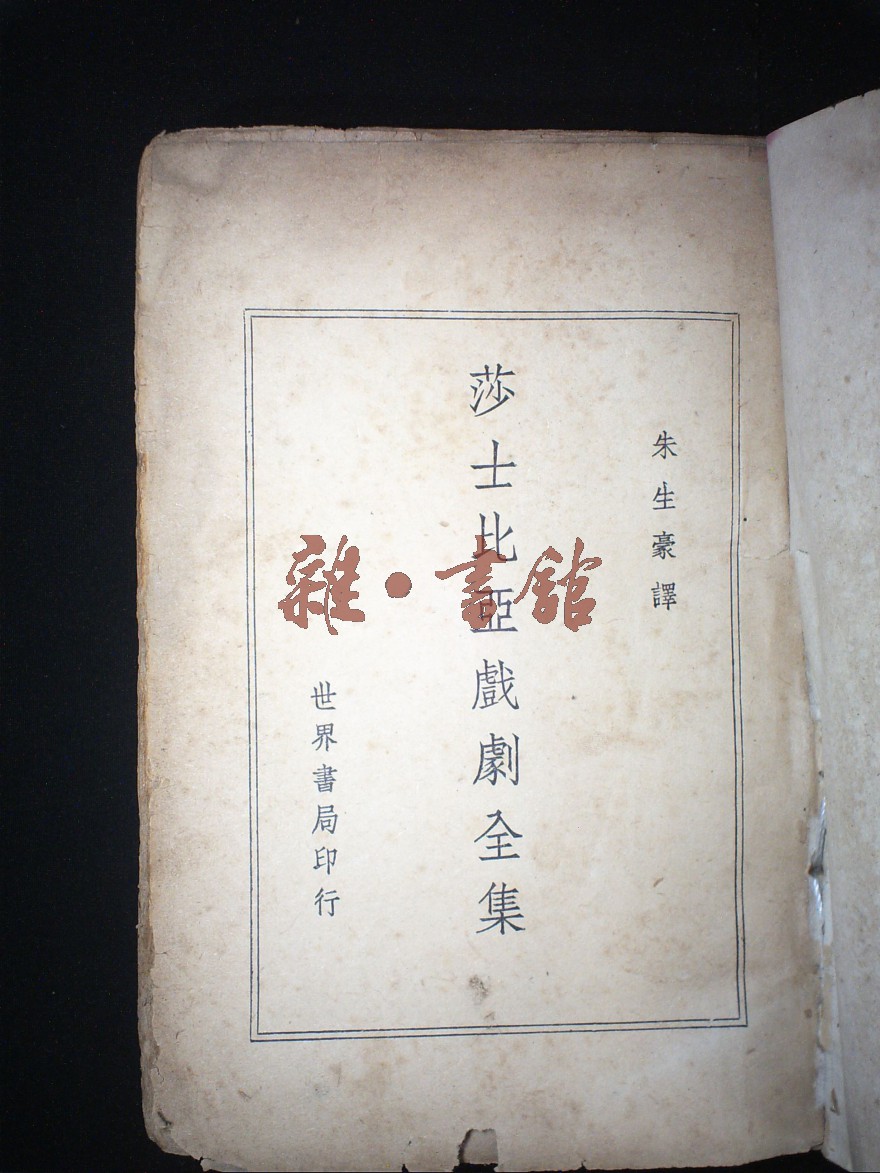 朱生豪譯
莎士比亞戲劇全集
世界書局印行
雜·書館